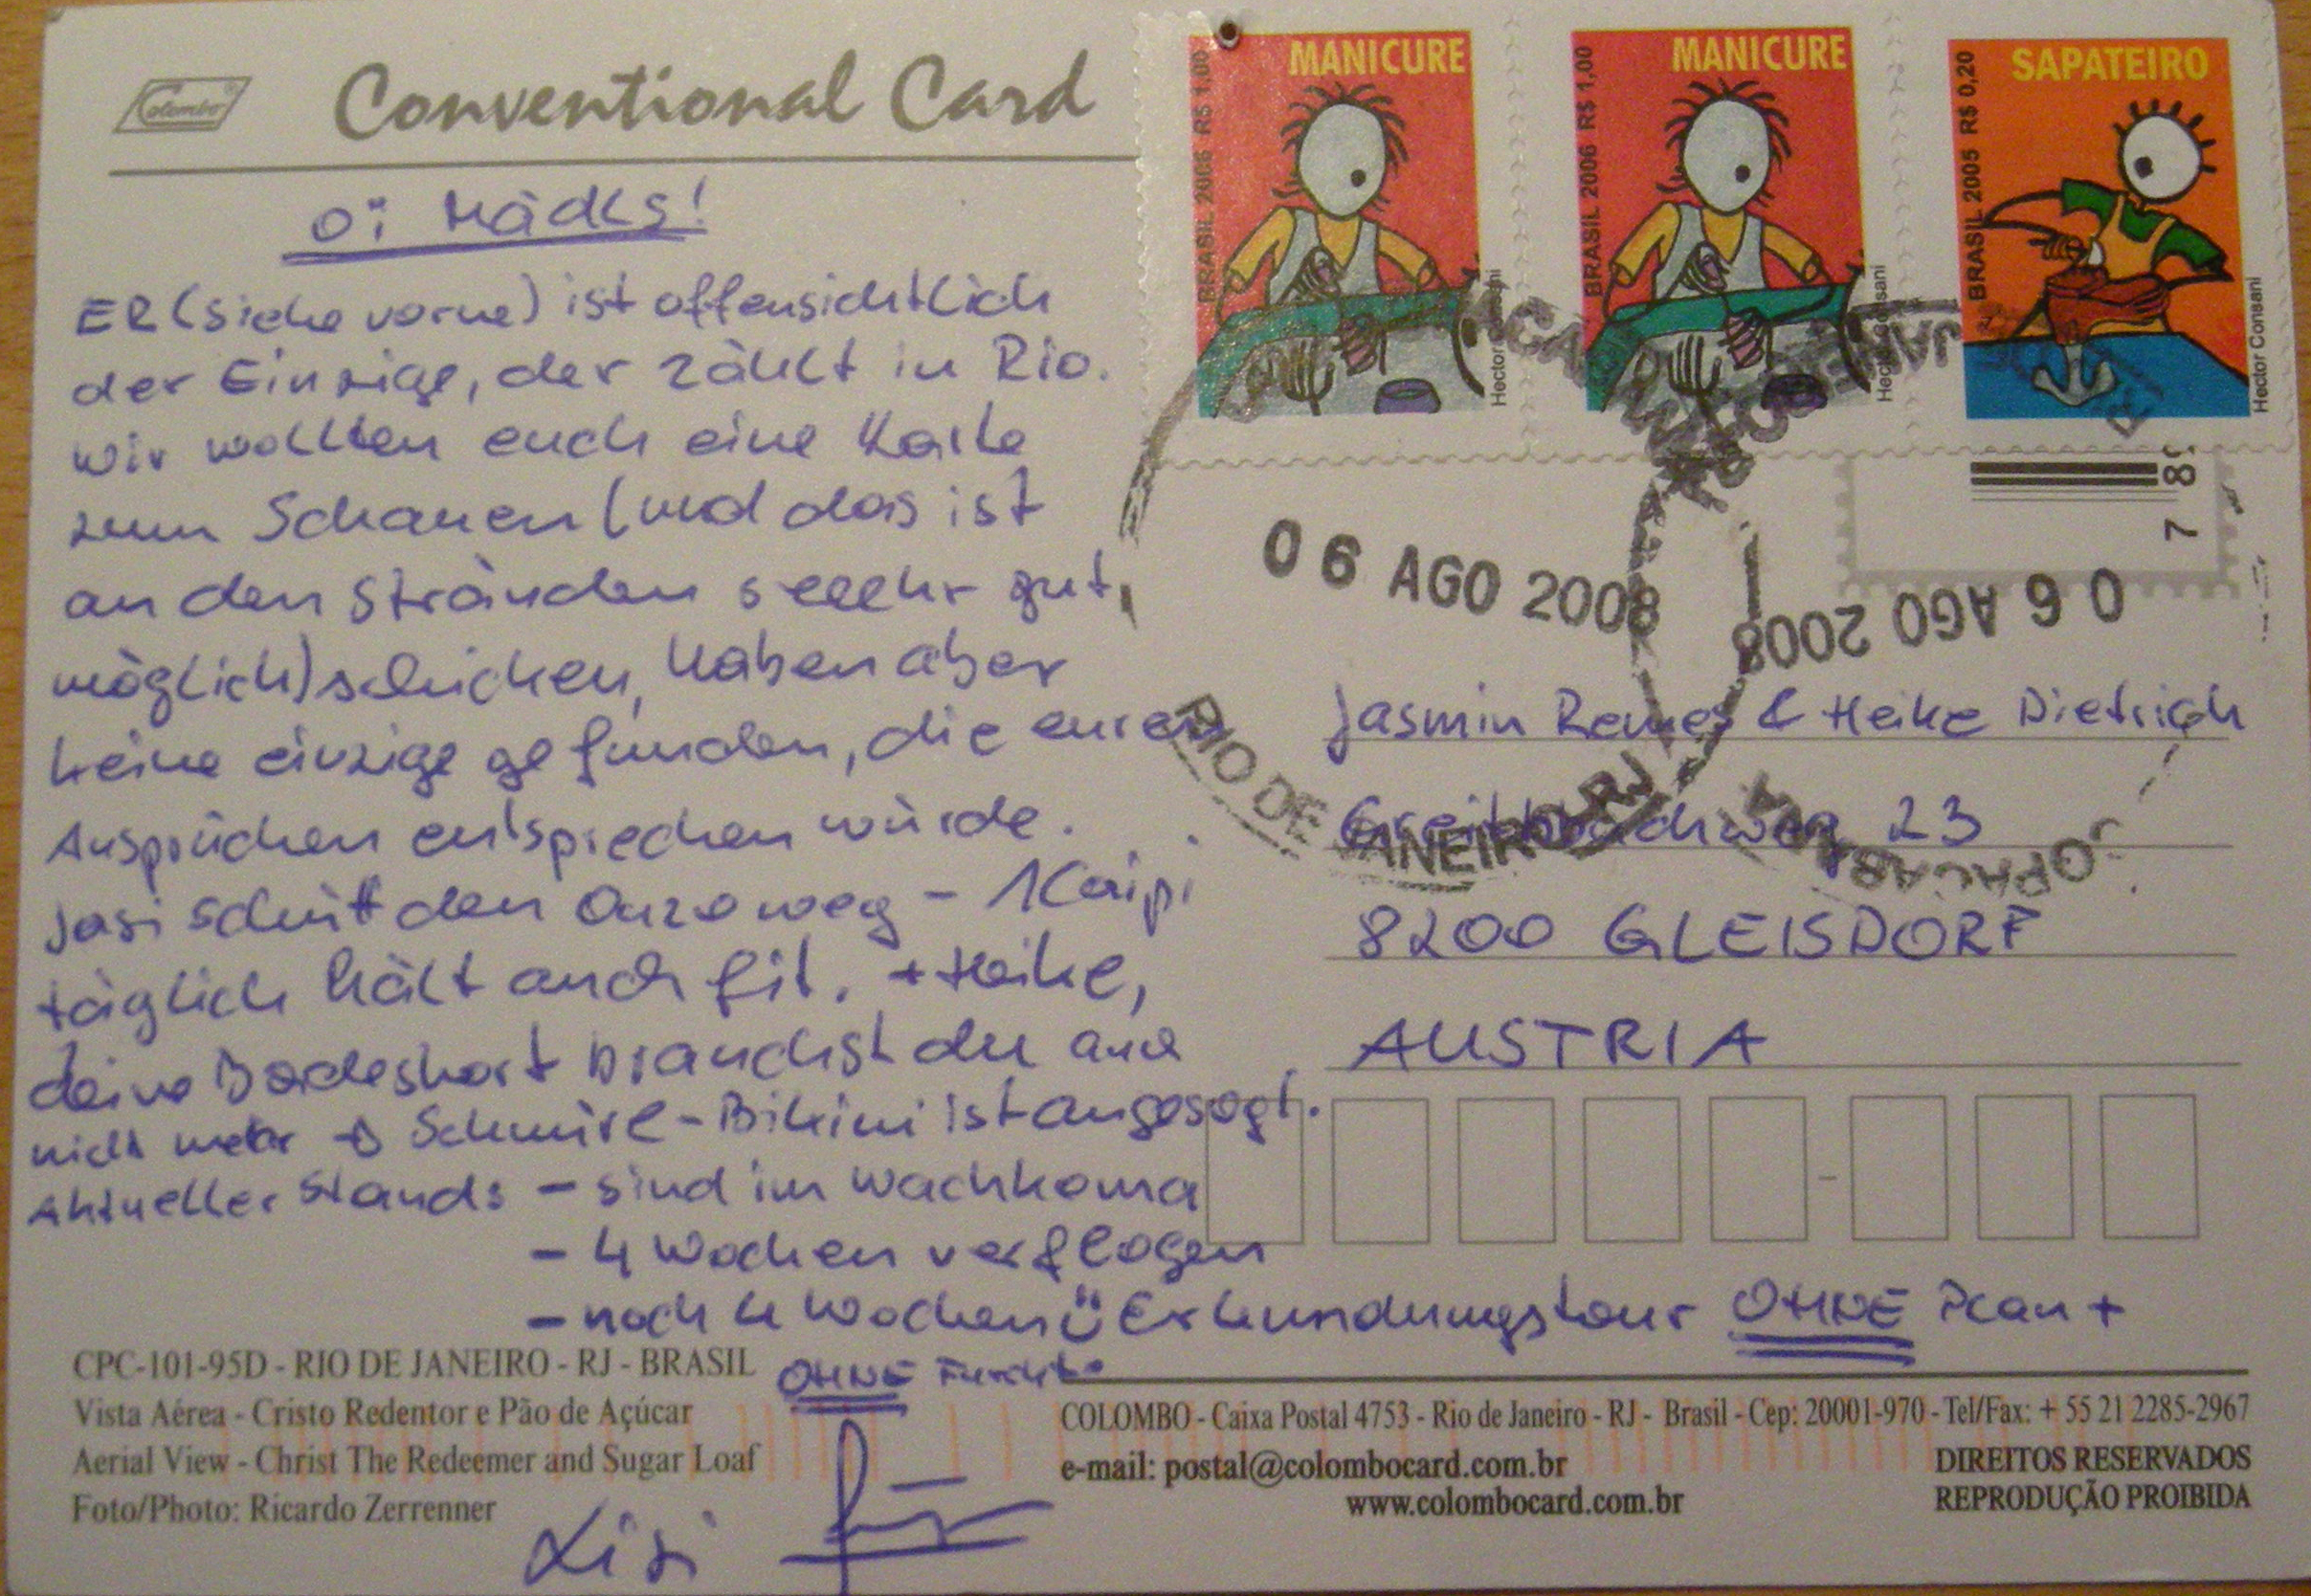 Colombo
Conventional Card
MANICURE
BRASIL 2006 R$ 1,00
Hector Consani
MANICURE
BRASIL 2006 R$ 1,00
Hector Consani
SAPATEIRO
BRASIL 2005 R$ 0,20
Hector Consani
Oi Mädls!
ER (siehe vorne) ist offensichtlich
der Einzige, der zählt in Rio.
Wir wollten euch eine Karte
zum Schauen (und das ist
an den Stränden seeehr gut
möglich) schicken, haben aber
keine einzige gefunden, die euren
Ansprüchen entsprechen würde.
Jasi schütt den Ouzo weg - 1 Kaipi
täglich hält auch fit. + Heike,
deine Badeshort brauchst du auch
nicht mehr → Schnürl-Bikini ist angesagt.
Aktueller Stand: - sind im Wachkoma
- 4 Wochen verflogen
- noch 4 Wochen ü Erkundungstour OHNE Plan +
OHNE
Lisi
06 AGO 2008
06 AGO 2008
RIO DE JANEIRO-RJ
COPACABANA
7 89
Jasmin & Heike Dietrich
23
8200 GLEISDORF
AUSTRIA
CPC-101-95D - RIO DE JANEIRO - RJ - BRASIL
Vista Aérea - Cristo Redentor e Pão de Açúcar
Aerial View - Christ The Redeemer and Sugar Loaf
Foto/Photo: Ricardo Zerrenner
COLOMBO - Caixa Postal 4753 - Rio de Janeiro - RJ - Brasil - Cep: 20001-970 - Tel/Fax: + 55 21 2285-2967
e-mail: postal@colombocard.com.br
www.colombocard.com.br
DIREITOS RESERVADOS
REPRODUÇÃO PROIBIDA